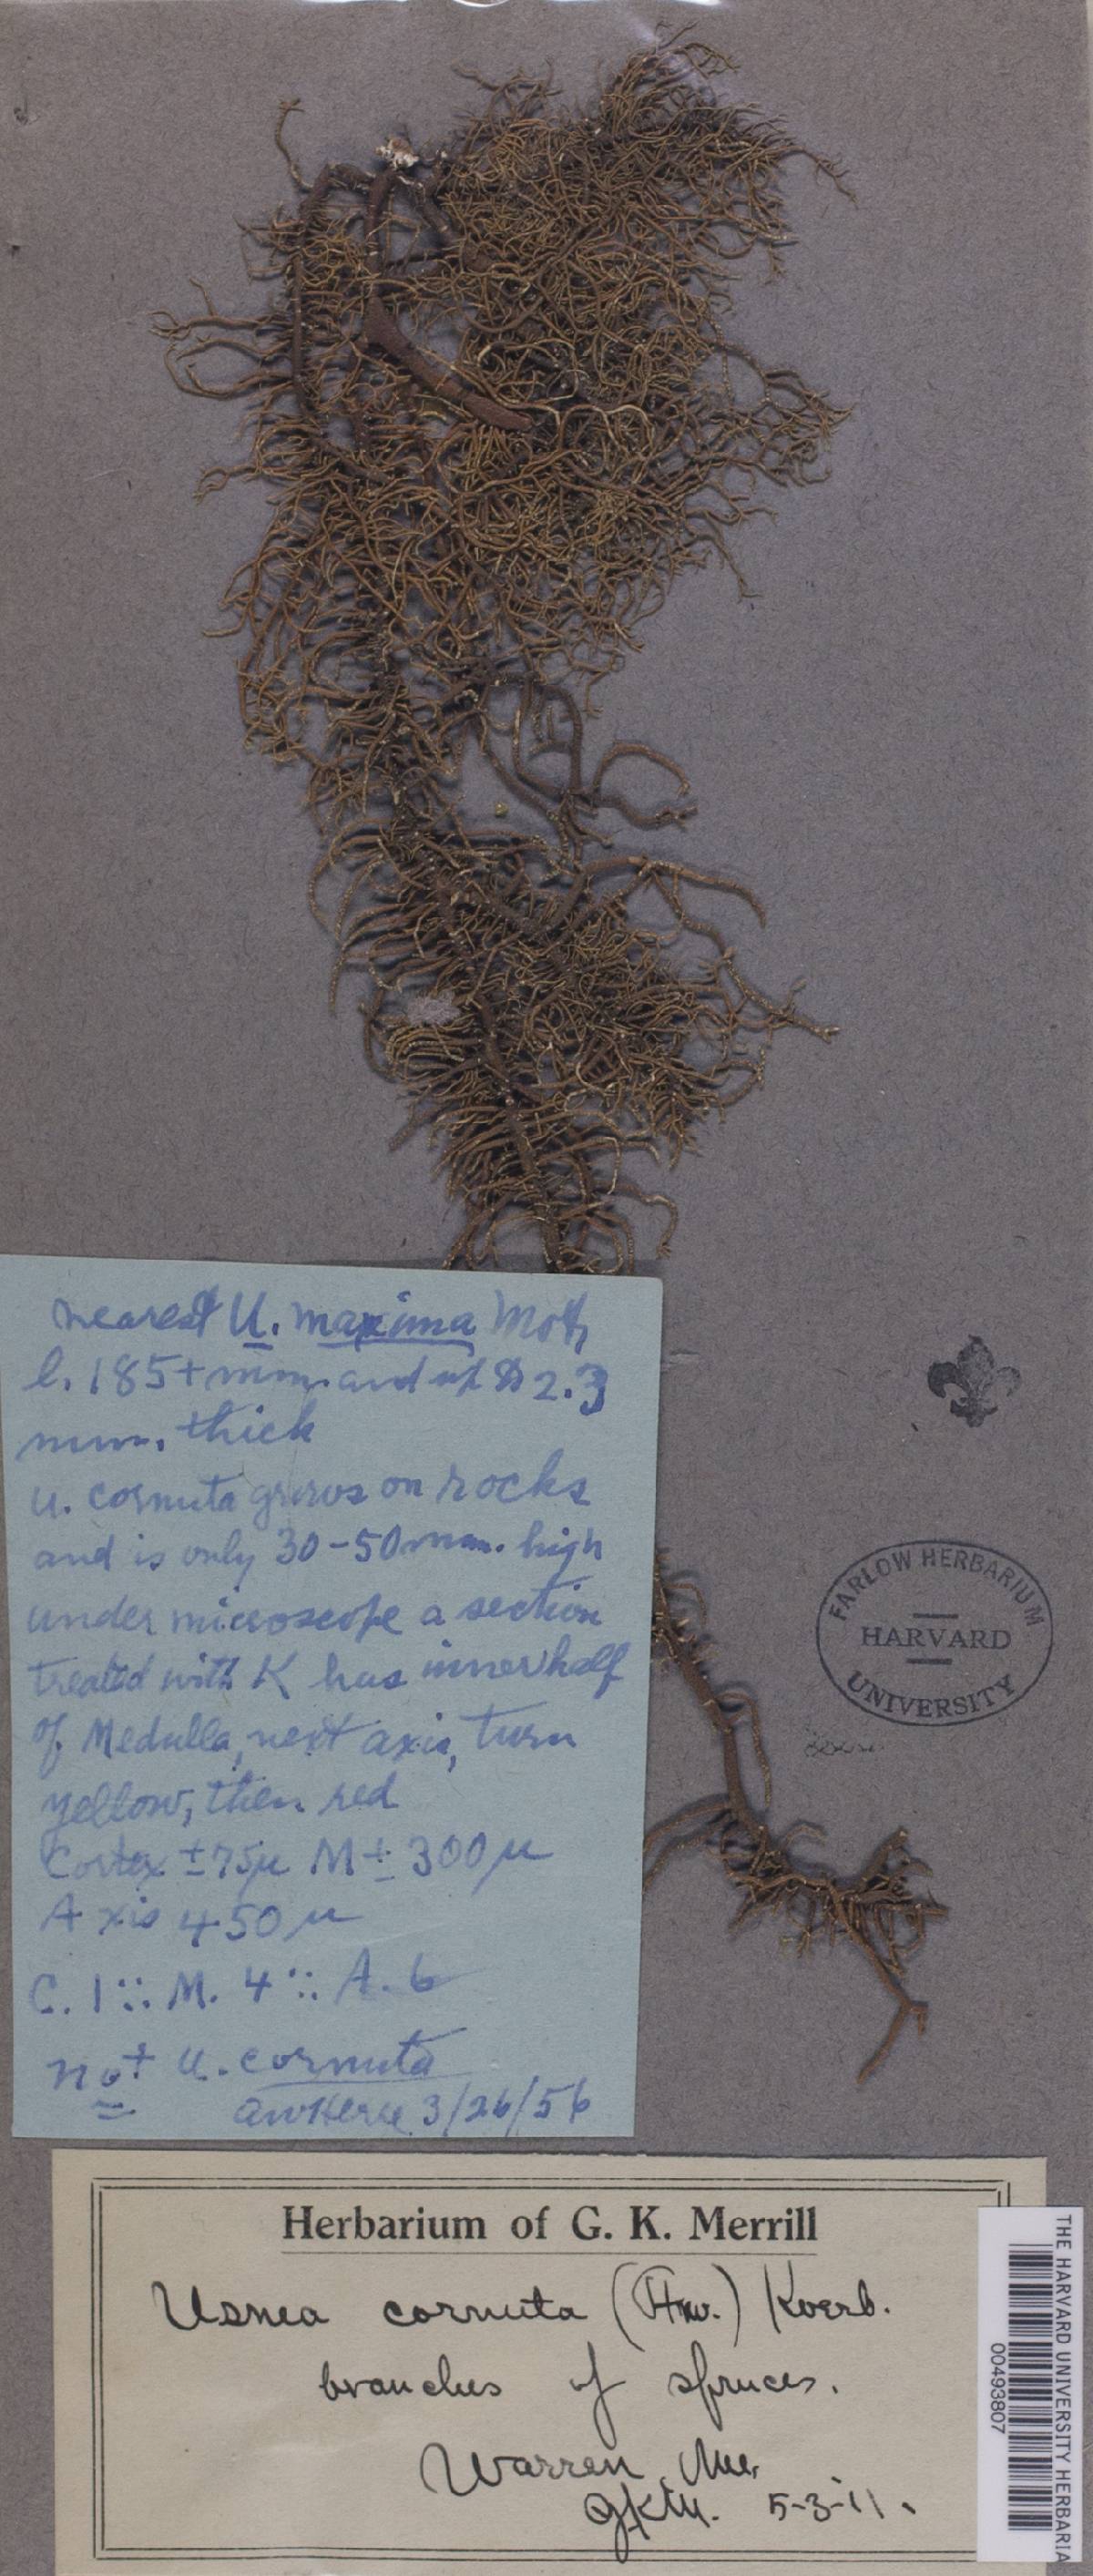 nearest U. maxima Mot,
l. 185+ mm. and up to 2.3
mm. thick
U. cornuta grows on rocks
and is only 30-50 mm. high
under microscope a section
treated with K has inner half
of Medulla, next axis, turn
yellow, then red
Cortex ±75µ M± 300µ
Axis 450µ
C. 1 :: M. 4 :: A. 6
not U. cornuta
AWHerre 3/26/56
FARLOW HERBARIUM
HARVARD
UNIVERSITY
Herbarium of G. K. Merrill
Usnea cornuta (Hav.) Koerb.
branches of spruces.
Warren, Me.
GKM. 5-3-'11.
THE HARVARD UNIVERSITY HERBARIA
00493807